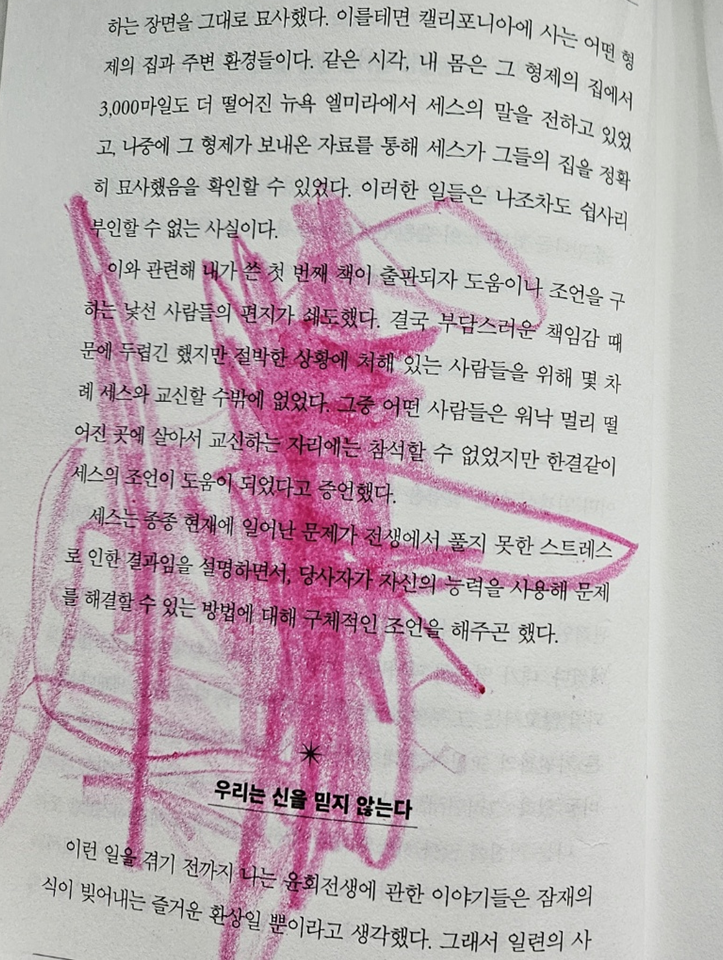 하는 장면을 그대로 묘사했다. 이를테면 캘리포니아에 사는 어떤 형
제의 집과 주변 환경들이다. 같은 시각, 내 몸은 그 형제의 집에서
3,000마일도 더 떨어진 뉴욕 엘미라에서 세스의 말을 전하고 있었
고, 나중에 그 형제가 보내온 자료를 통해 세스가 그들의 집을 정확
히 묘사했음을 확인할 수 있었다. 이러한 일들은 나조차도 쉽사리
부인할 수 없는 사실이다.
이와 관련해 내가 쓴 첫 번째 책이 출판되자 도움이나 조언을 구
하는 낯선 사람들의 편지가 쇄도했다. 결국 부담스러운 책임감 때
문에 두렵긴 했지만 절박한 상황에 처해 있는 사람들을 위해 몇 차
례 세스와 교신할 수밖에 없었다. 그중 어떤 사람들은 워낙 멀리 떨
어진 곳에 살아서 교신하는 자리에는 참석할 수 없었지만 한결같이
세스의 조언이 도움이 되었다고 증언했다.
세스는 종종 현재에 일어난 문제가 전생에서 풀지 못한 스트레스
로 인한 결과임을 설명하면서, 당사자가 자신의 능력을 사용해 문제
를 해결할 수 있는 방법에 대해 구체적인 조언을 해주곤 했다.
우리는 신을 믿지 않는다
이런 일을 겪기 전까지 나는 윤회전생에 관한 이야기들은 잠재의
식이 빚어내는 즐거운 환상일 뿐이라고 생각했다. 그래서 일련의 사